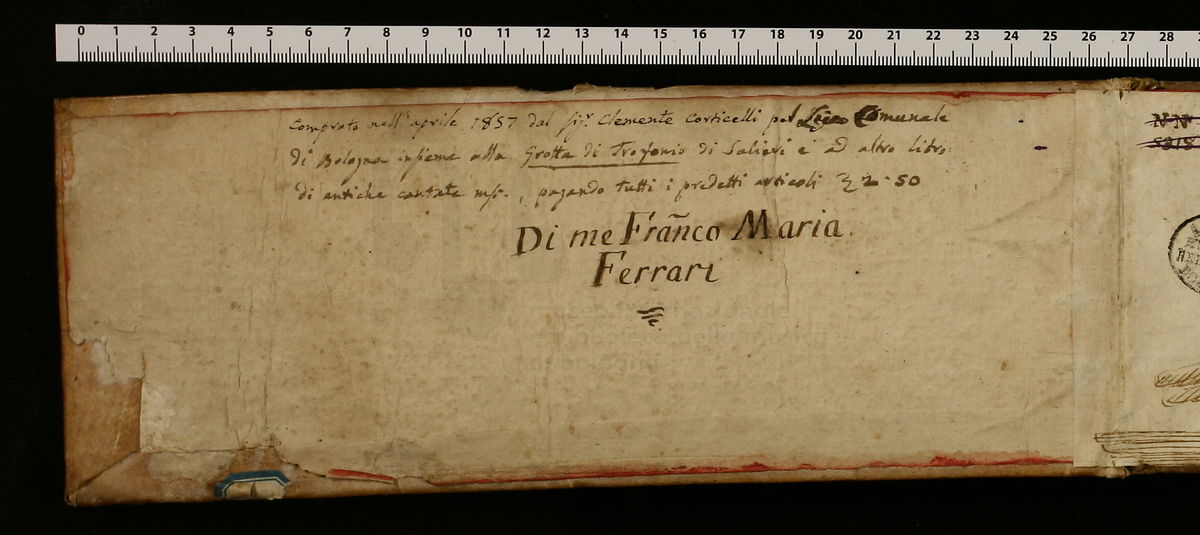 0 1 2 3 4 5 6 7 8 9 10 11 12 13 14 15 16 17 18 19 20 21 22 23 24 25 26 27 28
Comprato nell'aprile 1857 dal sigr. Clemente Corticelli pel Liceo Comunale
di Bologna insieme alla Grotta di Trofonio di Salieri e ad altro libro
di antiche cantate mss., pagando tutti i predetti articoli 2.50
Di me Frañco Maria.
Ferrari